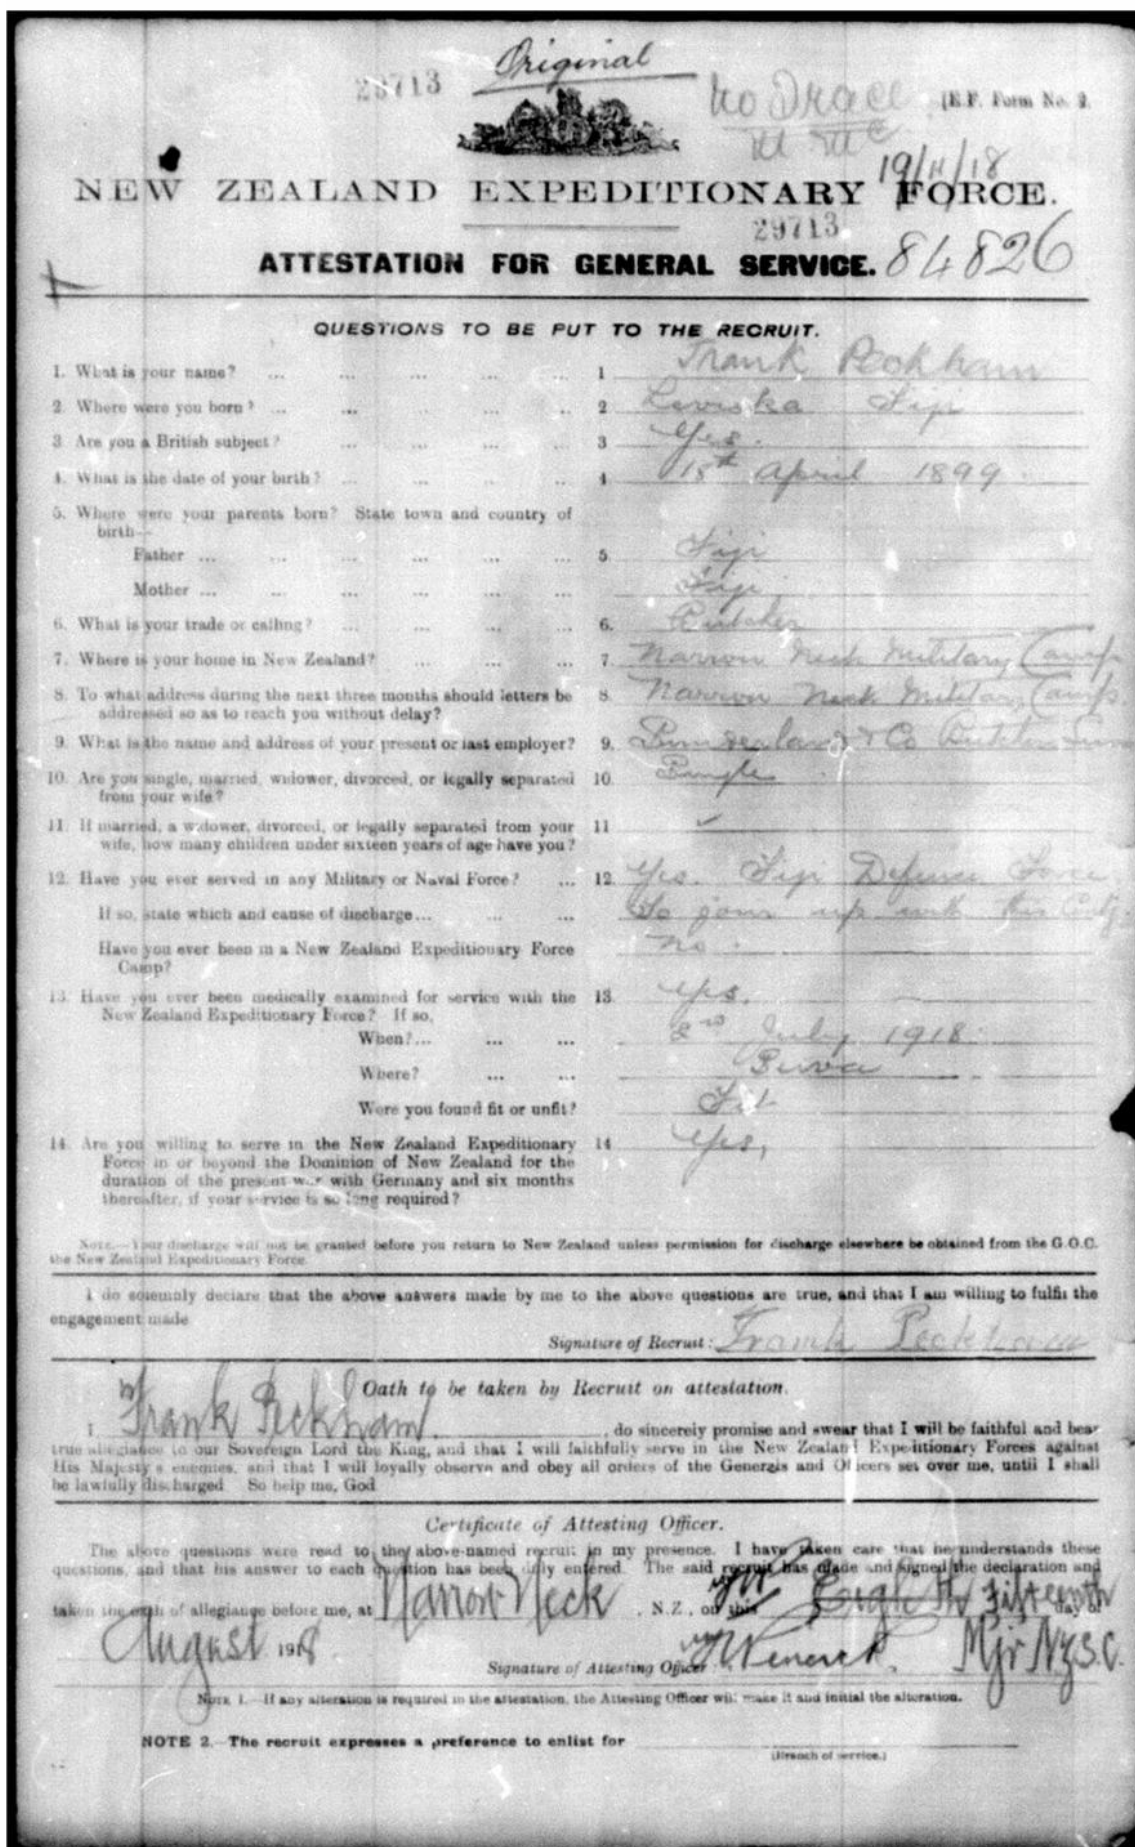 Original
29713
No Trace
[E.F. Form No. 2.
19/11/18
NEW ZEALAND EXPEDITIONARY FORCE.
29713
ATTESTATION FOR GENERAL SERVICE. 84826
QUESTIONS TO BE PUT TO THE RECRUIT.
1. What is your name? ... ... ... ... ... 1 Frank Peckham
2. Where were you born? ... ... ... ... ... 2 Levuka Fiji
3. Are you a British subject? ... ... ... ... 3 Yes.
4. What is the date of your birth? ... ... ... ... 4 15th April 1899
5. Where were your parents born? State town and country of
birth—
Father ... ... ... ... ... ... 5. Fiji
Mother ... ... ... ... ... ... Fiji
6. What is your trade or calling? ... ... ... ... 6. Butcher
7. Where is your home in New Zealand? ... ... ... 7. Narrow Neck Military Camp
8. To what address during the next three months should letters be 8. Narrow Neck Military Camp.
addressed so as to reach you without delay?
9. What is the name and address of your present or last employer? 9. & Co Butcher
10. Are you single, married, widower, divorced, or legally separated 10. Single
from your wife?
11. If married, a widower, divorced, or legally separated from your 11 ✓
wife, how many children under sixteen years of age have you?
12. Have you ever served in any Military or Naval Force? ... 12. Yes. Fiji Defence Force
If so, state which and cause of discharge... ... ... To join up with this Contg.
Have you ever been in a New Zealand Expeditionary Force No.
Camp?
13. Have you ever been medically examined for service with the 13. Yes.
New Zealand Expeditionary Force? If so,
When?... ... ... 2nd July 1918.
Where? ... ... Suva
Were you found fit or unfit? Fit
14. Are you willing to serve in the New Zealand Expeditionary 14 Yes,
Force in or beyond the Dominion of New Zealand for the
duration of the present war with Germany and six months
thereafter, if your service is so long required?
NOTE.—Your discharge will not be granted before you return to New Zealand unless permission for discharge elsewhere be obtained from the G.O.C.
the New Zealand Expeditionary Force
I do solemnly declare that the above answers made by me to the above questions are true, and that I am willing to fulfil the
engagement made
Signature of Recruit: Frank Peckham
Oath to be taken by Recruit on attestation.
I Frank Peckham, do sincerely promise and swear that I will be faithful and bear
true allegiance to our Sovereign Lord the King, and that I will faithfully serve in the New Zealand Expeditionary Forces against
His Majesty's enemies, and that I will loyally observe and obey all orders of the Generals and Officers set over me, until I shall
be lawfully discharged. So help me, God
Certificate of Attesting Officer.
The above questions were read to the above-named recruit in my presence. I have taken care that he understands these
questions, and that his answer to each question has been duly entered. The said recruit has made and signed the declaration and
taken the oath of allegiance before me, at Narrow Neck, N.Z., on this Eighth Fifteenth day of
August 1918
Signature of Attesting Officer: Mjr NZSC.
NOTE 1.—If any alteration is required in the attestation, the Attesting Officer will make it and initial the alteration.
NOTE 2.—The recruit expresses a preference to enlist for
(Branch of service.)